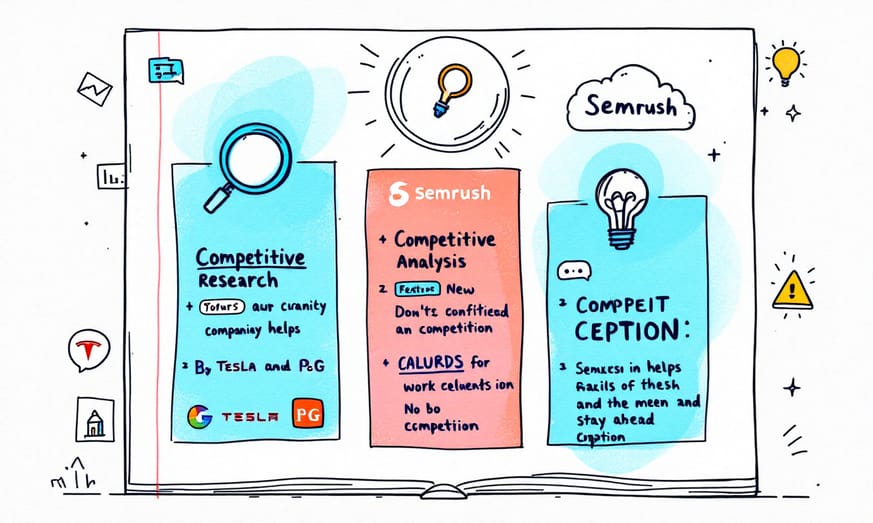 Semrush
Competitive
Research
+ Tofurs aur curanity
companiay helps
By TESLA and P&G
TESLA PG
Semrush
+ Competitive
Analysis
2 New
Don'ts confitieod
an competition
+ CALURDS for
work celuents ion
No bo
ccmpetiion
COMPPEIT
CEPTION:
in helps
of thesh
and the meen and
stay ahead